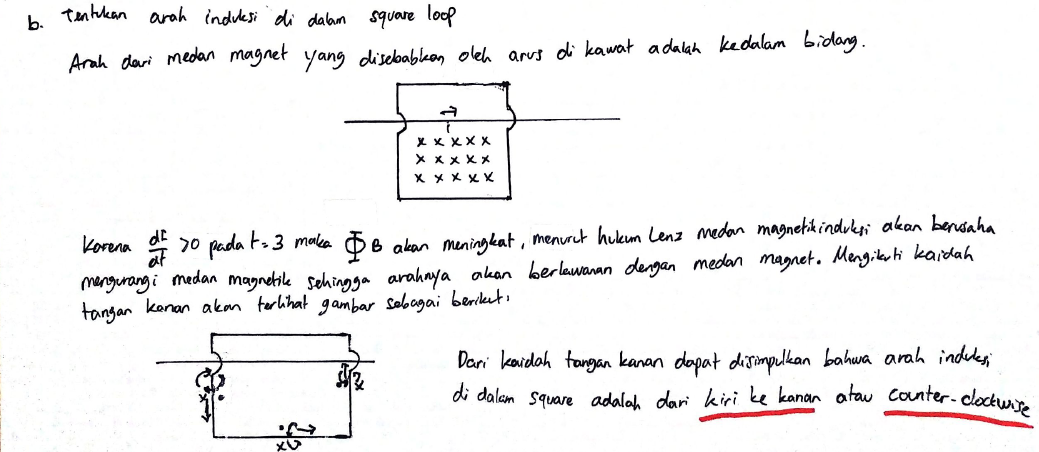 b. Tentukan arah induksi di dalam square loop
Arah dari medan magnet yang disebabkan oleh arus di kawat adalah kedalam bidang.
i
x x x x x
x x x x x
x x x x x
Karena di/dt >0 pada t=3 maka ΦB akan meningkat, menurut hukum Lenz medan magnetik induksi akan berusaha
mengurangi medan magnetik sehingga arahnya akan berlawanan dengan medan magnet. Mengikuti kaidah
tangan kanan akan terlihat gambar sebagai berikut,
Dari kaidah tangan kanan dapat disimpulkan bahwa arah induksi
di dalam square adalah dari kiri ke kanan atau counter-clockwise
x
x
x